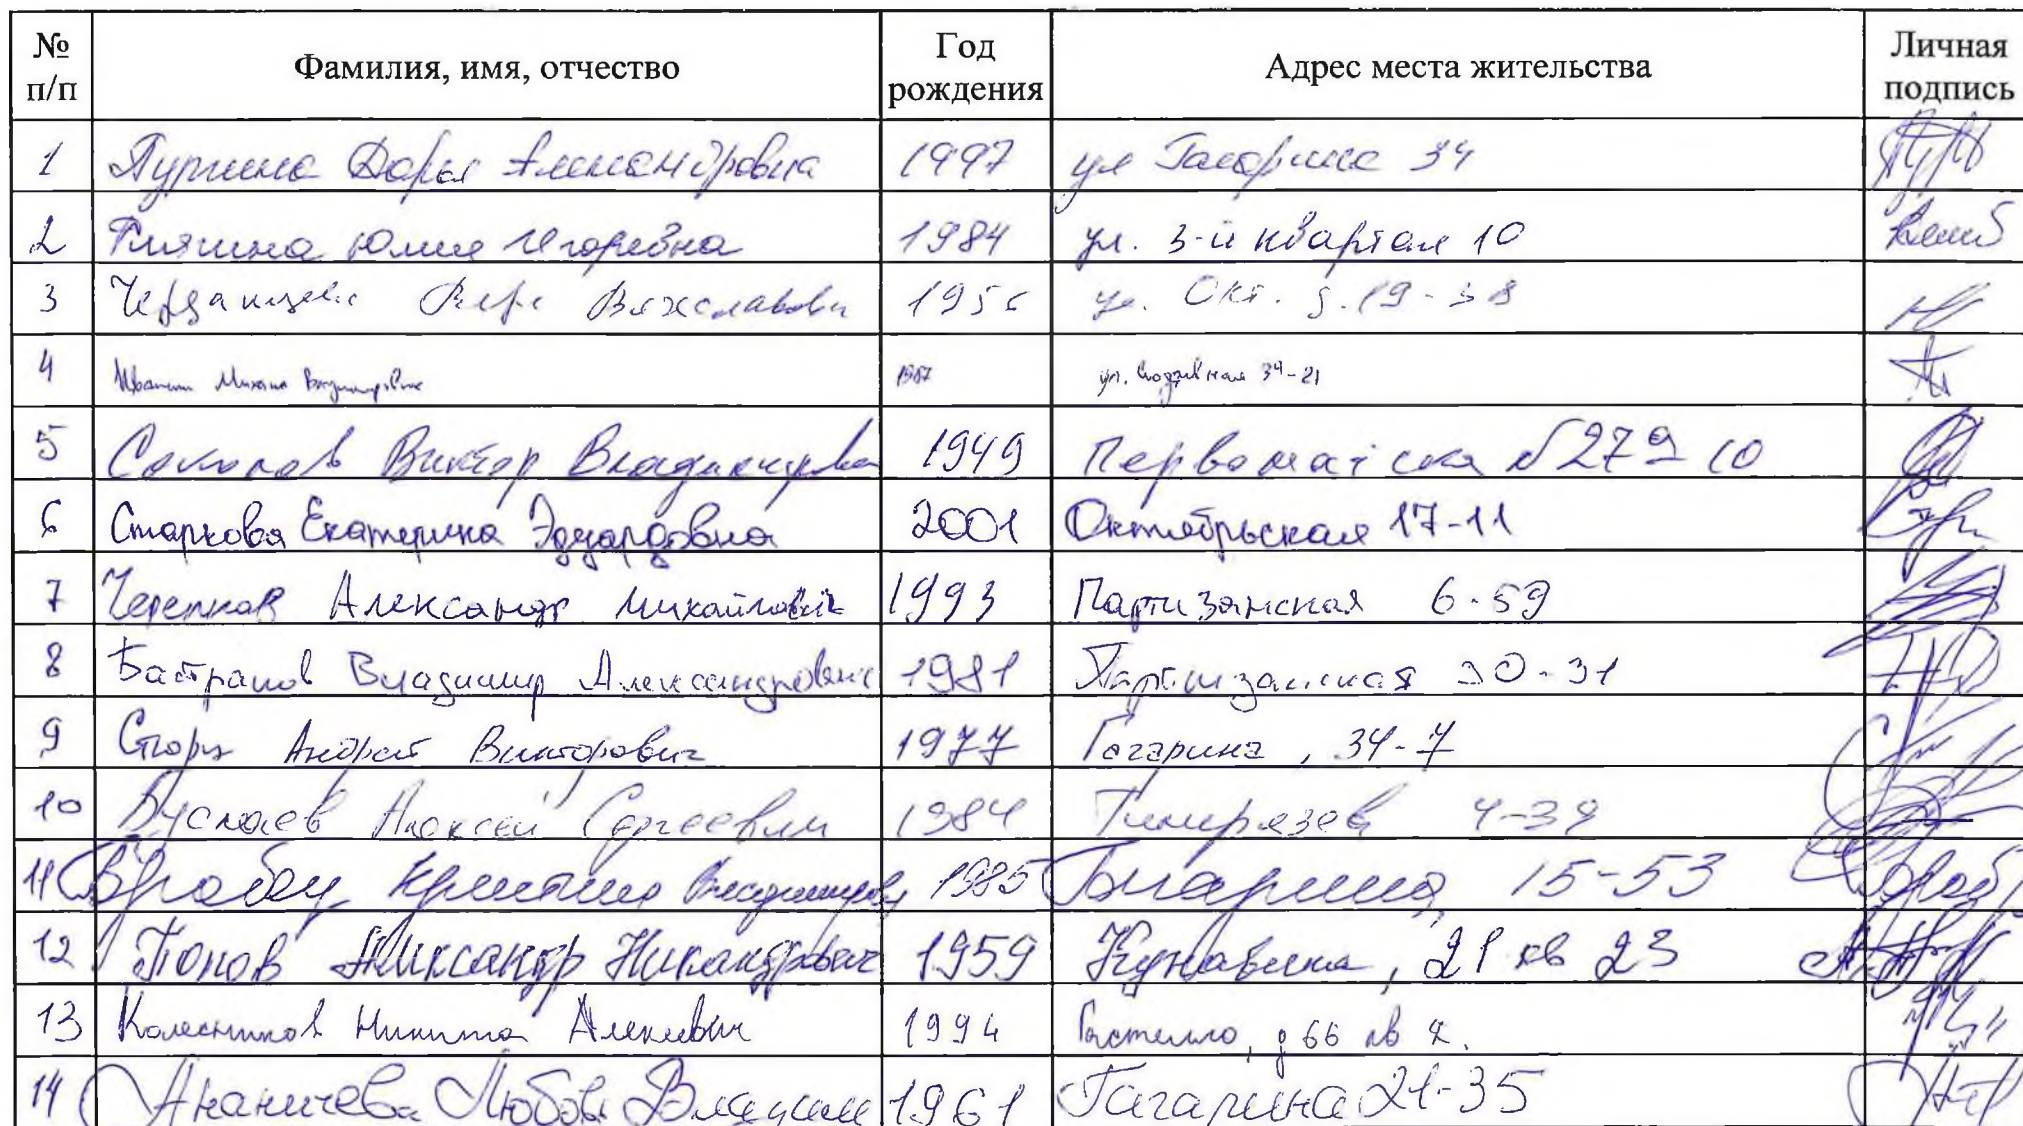 № п/п Фамилия, имя, отчество Год рождения Адрес места жительства Личная подпись
1 Пургина Дарья Александровна 1997 ул Гагарина 34
2 Юлия Игоревна 1984 ул. 3-й квартал 10
3 Вера Вячеславовн 1956 ул. Окт. д. 19-38
4 Иванин Михаил Владимирович 1987 ул. 34-21
5 Соколов Виктор Владимирови 1949 Первомайска 10
6 Старкова Екатерина Эдуардовна 2001 Октябрьская 17-11
7 Черепков Александр Михайлович 1993 Партизанская 6-59
8 Батраков Владимир Александрович 1981 Партизанская 30-31
9 Андрей Викторович 1977 Гагарина, 34-7
10 Буслаев Алексей Сергеевич 1984 Тимирязев
11 Кристина Владимировн 1985 Гагарина, 15-53
12 Попов Александр Никандрович 1959 Кунавина, 21 кв 23
13 Колесников Никита Алексеевич 1994 Гастелло, д 66 кв
14 Ананичева Любовь Владим 1961 Гагарина 21-35